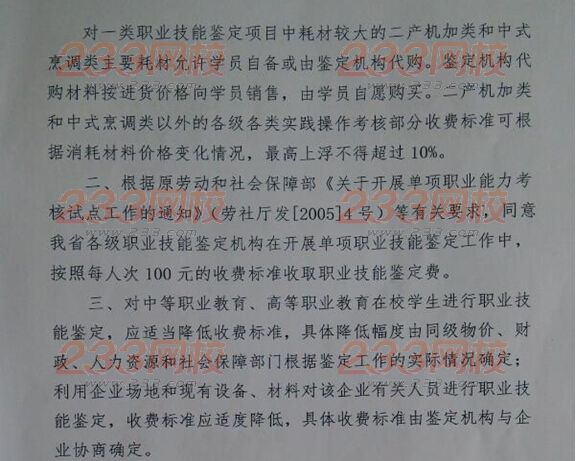 对一类职业技能鉴定项目中耗材较大的二产机加类和中式
烹调类主要耗材允许学员自备或由鉴定机构代购。鉴定机构代
购材料按进货价格向学员销售，由学员自愿购买。二产机加类
和中式烹调类以外的各级各类实践操作考核部分收费标准可根
据消耗材料价格变化情况，最高上浮不得超过10%。
二、根据原劳动和社会保障部《关于开展单项职业能力考
核试点工作的通知》（劳社厅发[2005]4号）等有关要求，同意
我省各级职业技能鉴定机构在开展单项职业技能鉴定工作中，
按照每人次100元的收费标准收取职业技能鉴定费。
三、对中等职业教育、高等职业教育在校学生进行职业技
能鉴定，应适当降低收费标准，具体降低幅度由同级物价、财
政、人力资源和社会保障部门根据鉴定工作的实际情况确定；
利用企业场地和现有设备、材料对该企业有关人员进行职业技
能鉴定，收费标准应适度降低，具体收费标准由鉴定机构与企
业协商确定。
233网校
233网校
233网校
233网校
233网校
233网校